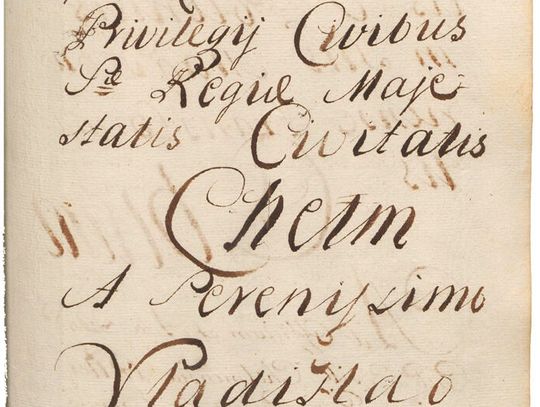 Privilegij Civibus
Sæ Regiæ Maje
statis Civitatis
Chelm
A Serenissimo
Vladislao